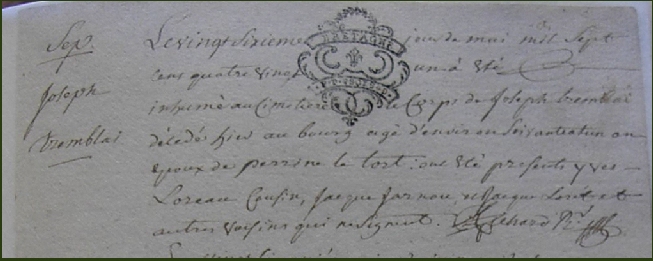 Sep.
Joseph
Tremblai
Le vingt Sixieme jour de mai mil Sept
cens quatre vingt un a été
inhumé au Cimetiere le Corps de Joseph tremblai
décédé hier au bourg agé d'environ Soixante un an
epoux de perrine le tort : ont été presents yves
Loreau Cousin, Jacque Jarnou, et Jacque et
autres voisins qui ne signent.
BRETAGNE